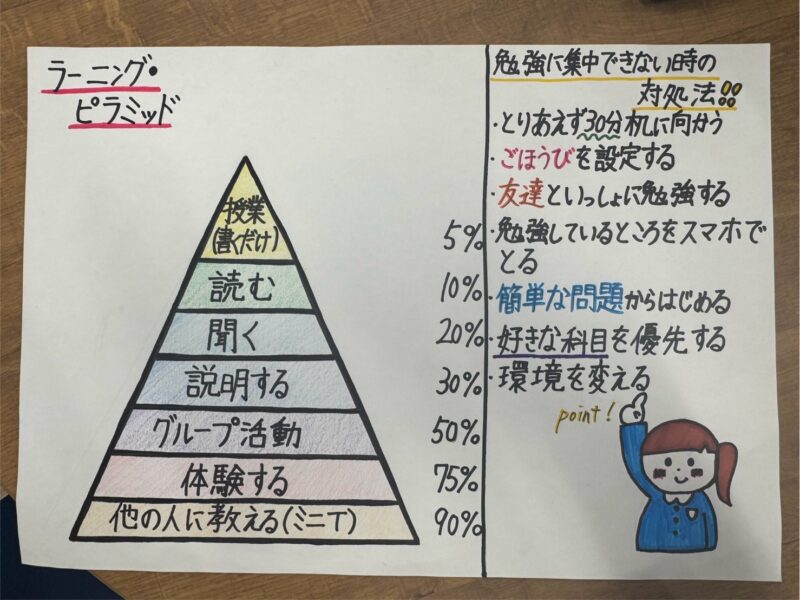 ラーニング・
ピラミッド
授業
(書くだけ)
5%
読む
10%
聞く
20%
説明する
30%
グループ活動
50%
体験する
75%
他の人に教える(ミニT)
90%
勉強に集中できない時の
対処法!!
・とりあえず30分机に向かう
・ごほうびを設定する
・友達といっしょに勉強する
・勉強しているところをスマホで
とる
・簡単な問題からはじめる
・好きな科目を優先する
・環境を変える
point!